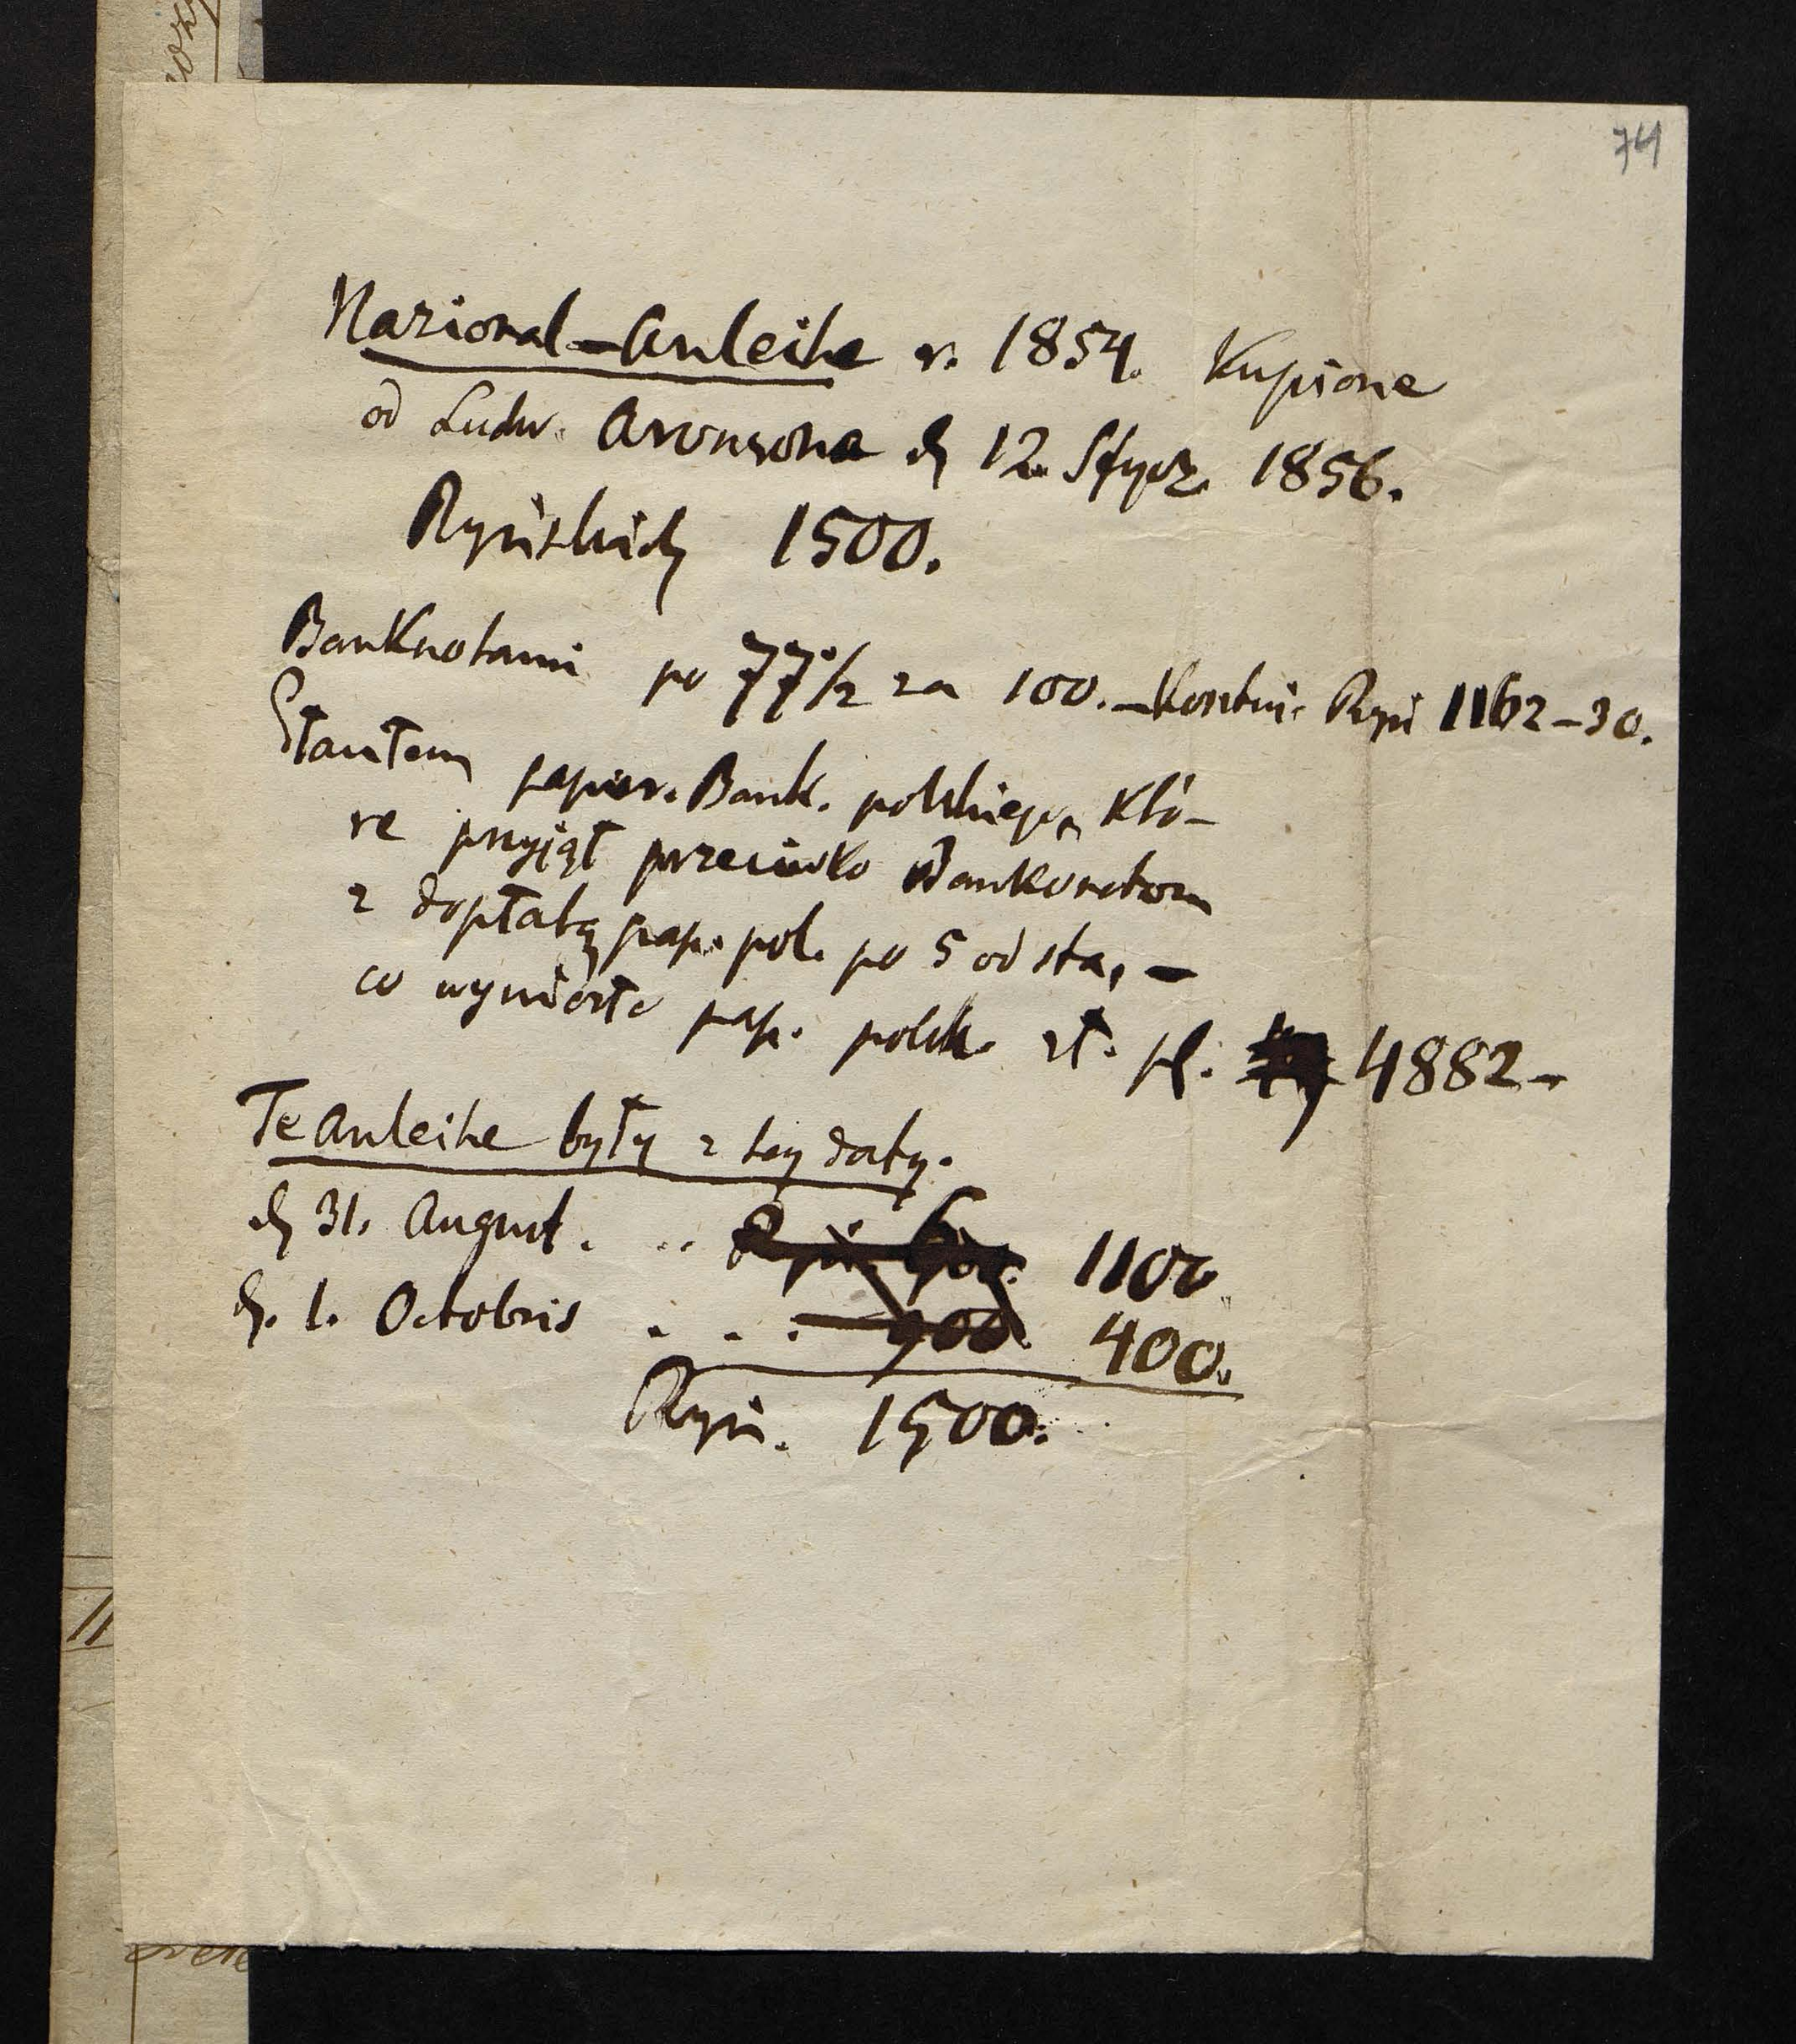 74
Nazional-Anleihe v. 1854. Kupione
od Ludw. Aronsona d. 12. Stycz. 1856.
Ryńskich 1500.
Banknotami po 77 1/2 za 100. – Kosztuie Ryń 1162–30.
papier. Bank. polskiego, któ-
re przyiął przeciwko Bankonotom
z dopłatą pap. pol. po 5 od sta, –
co wyniosło pap. polsk. zł. pl. 4882–
Te Anleihe były z tey daty.
d. 31. August . . . 1100
d. 1. Octobris . . . 900. 400.
Ryń. 1500.